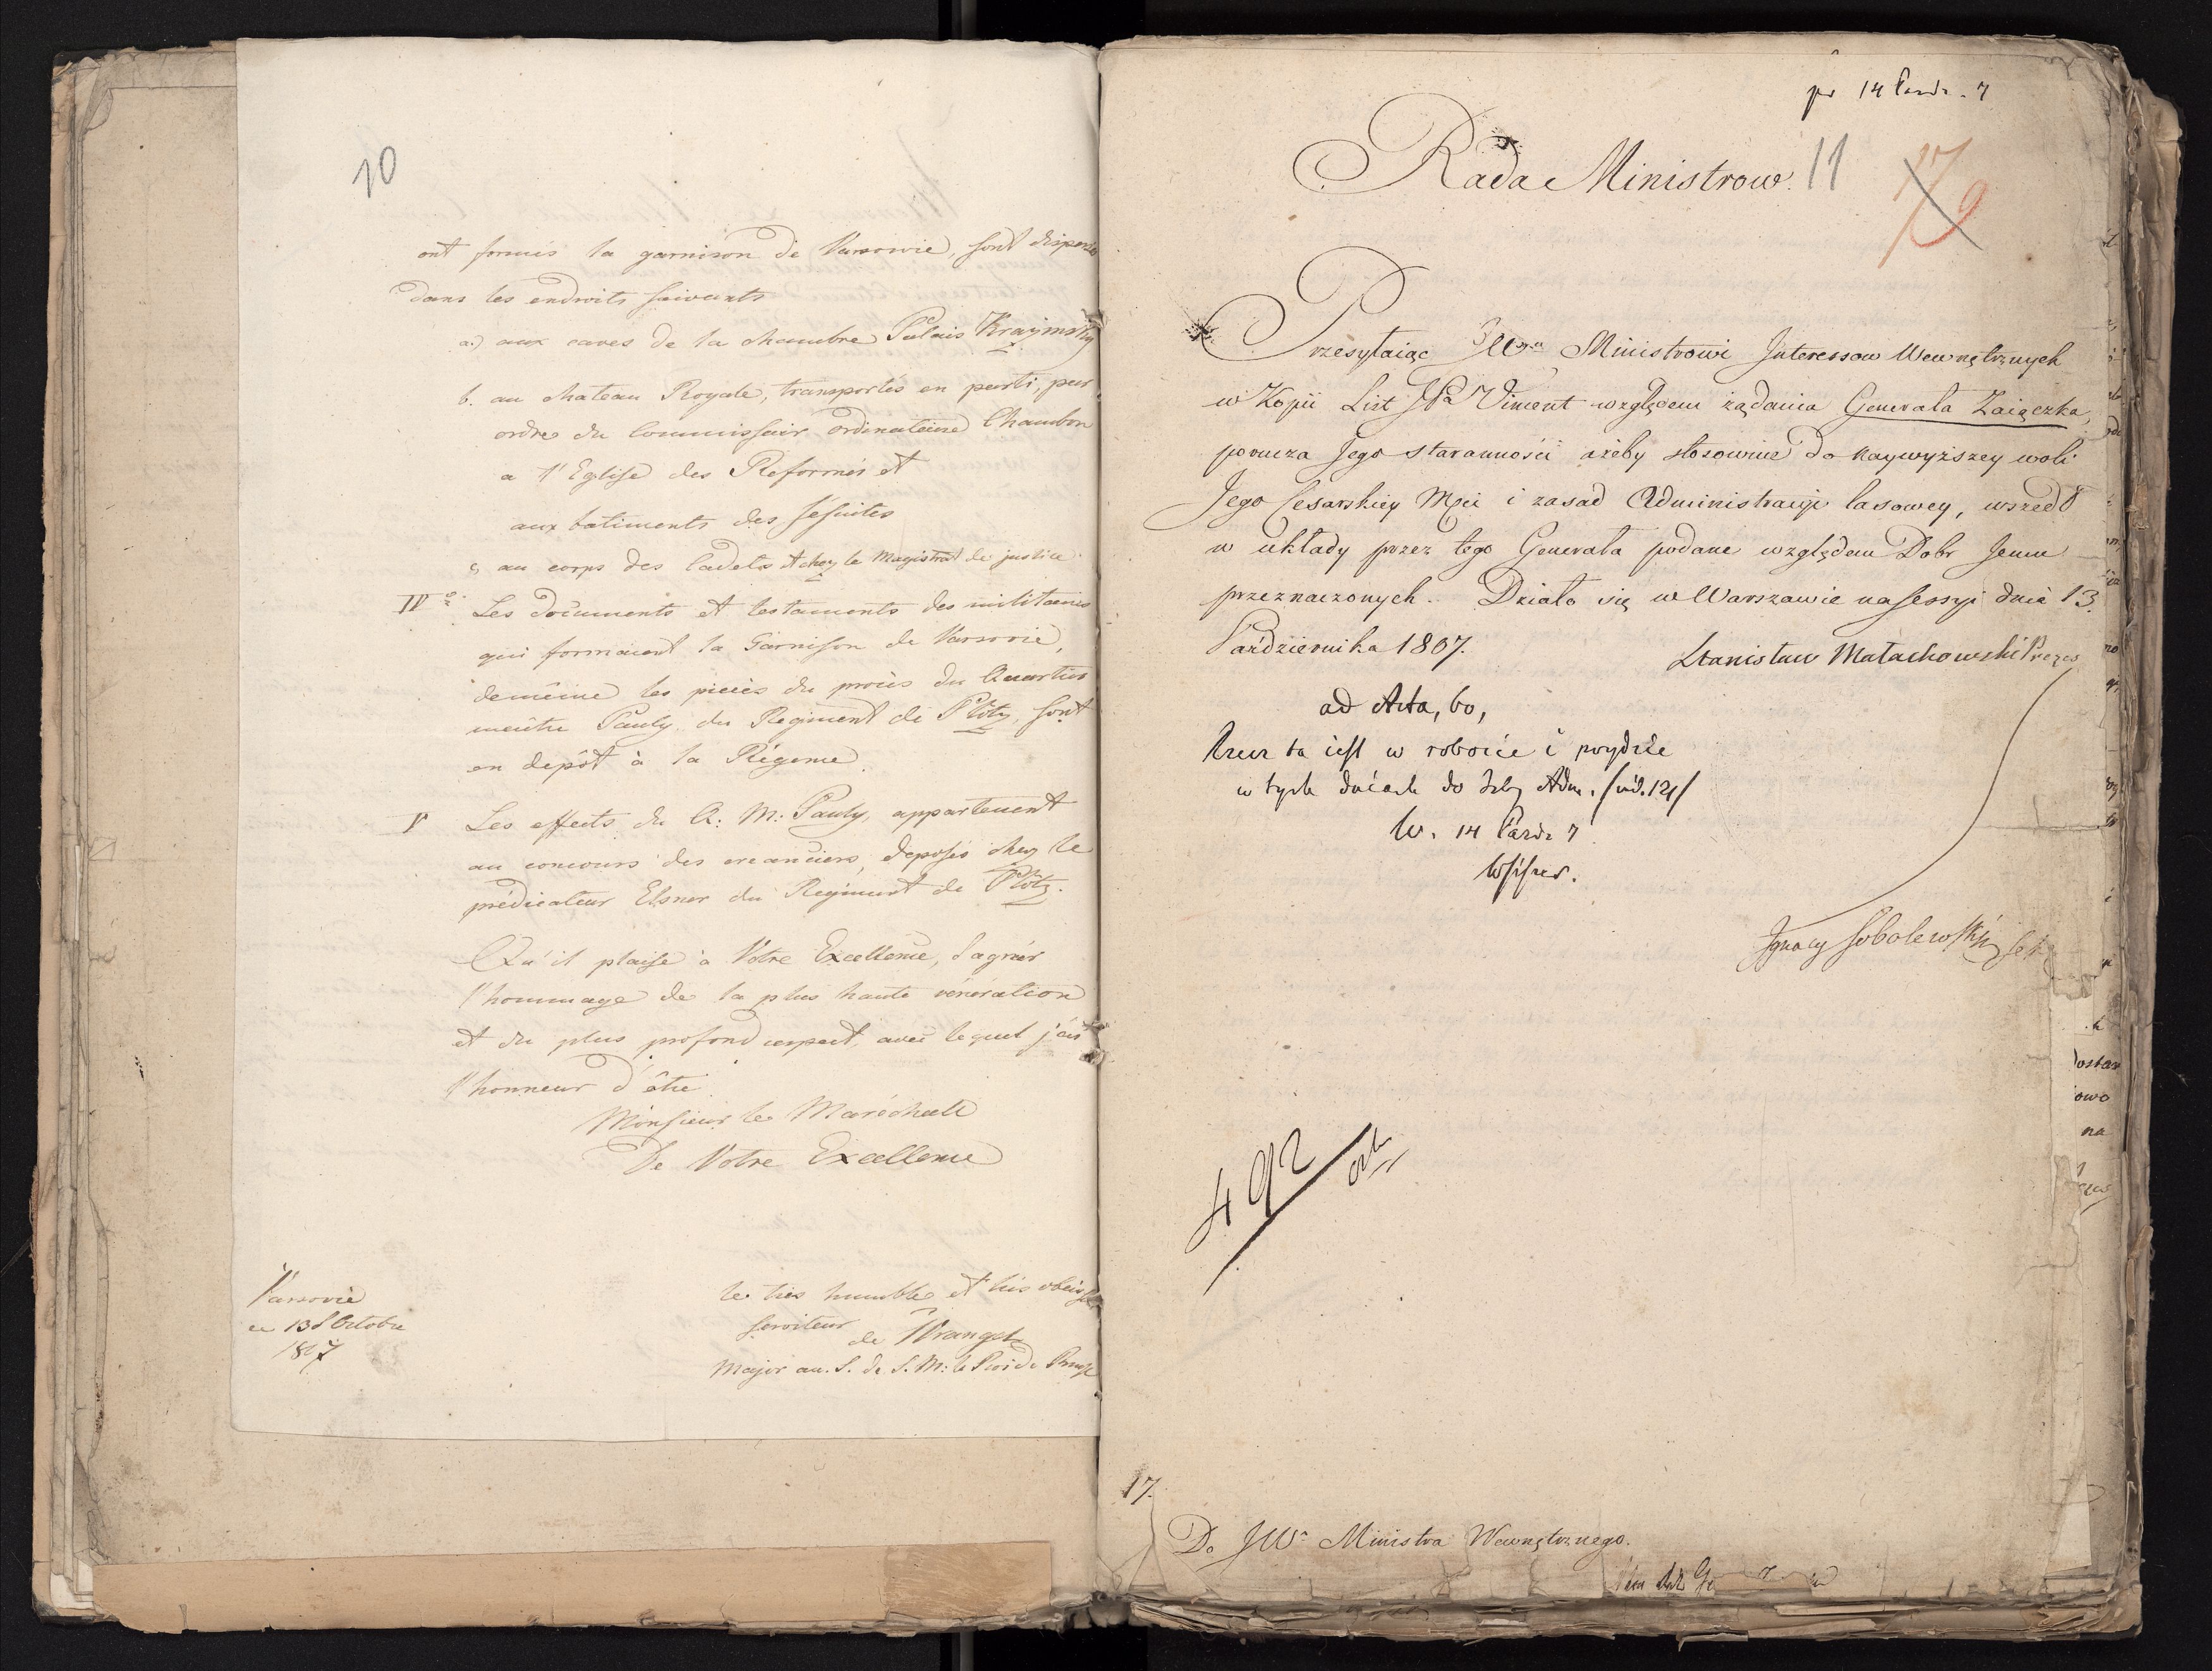 10
ont formés la garnison de Varsovie, sont disperses
dans les endroits suivants
a.) aux caves de la chambre Palais Krasinsky
b. au chateau Royale, transportés en parti, par
ordre du Commissair ordinateure Chambon
a l'Eglise des Reformés et
aux batiments des Jésuites
c, au corps des Cadets et chez le Magistrat de justice.
IVº Les documents et testaments des militaires
qui formaient la Garnison de Varsovie,
demême les pieces du procès du Quartier
meître Pauly du Regiment de Plötz, sont
en depôt à la Régence.
V Les effects du Q: M: Pauly, appartenent
au concours des creanciers, deposés chez le
prédicateur Elsner du Regiment de Plötz.
Qu'il plaise à Votre Excellence, d'agréer
l'hommage de la plus haute vénération
et du plus profond respect, avec lequel j'ai
l'honneur d'être
Monsieur le Maréchall
De Votre Excellence
Varsovie
ce 13 d'Octobre
1807
le très humble et très obeiss
serviteur de Wrangel
Major au. S. de. S. M: le Roi de Prusse
pr 14 Pazdr. 7
Rada Ministrow.
11
17
9
Przesyłaiąc JW Ministrowi Interessow Wewnętrznych
w Kopii List JPa Vincent względem żądania Generała Zaiączka,
porucza Jego staranności ażeby stosownie do naywyższey woli
Jego Cesarskiey Mci i zasad Administracyi lasowey, wszedł
w układy przez tego Generała podane względem Dobr Jemu
przeznaczonych. Działo się w Warszawie na sessyi dnia 13.
Października 1807.
Stanisław Małachowski Prezes
ad Acta, bo,
Rzecz ta iest w robocie i poydzie
w tych dniach do Izby Adm. /vid. 121/
W. 14 Pazdr 7
Ignacy Sobolewski Sek
492
17.
Do JW Ministra Wewnętrznego.